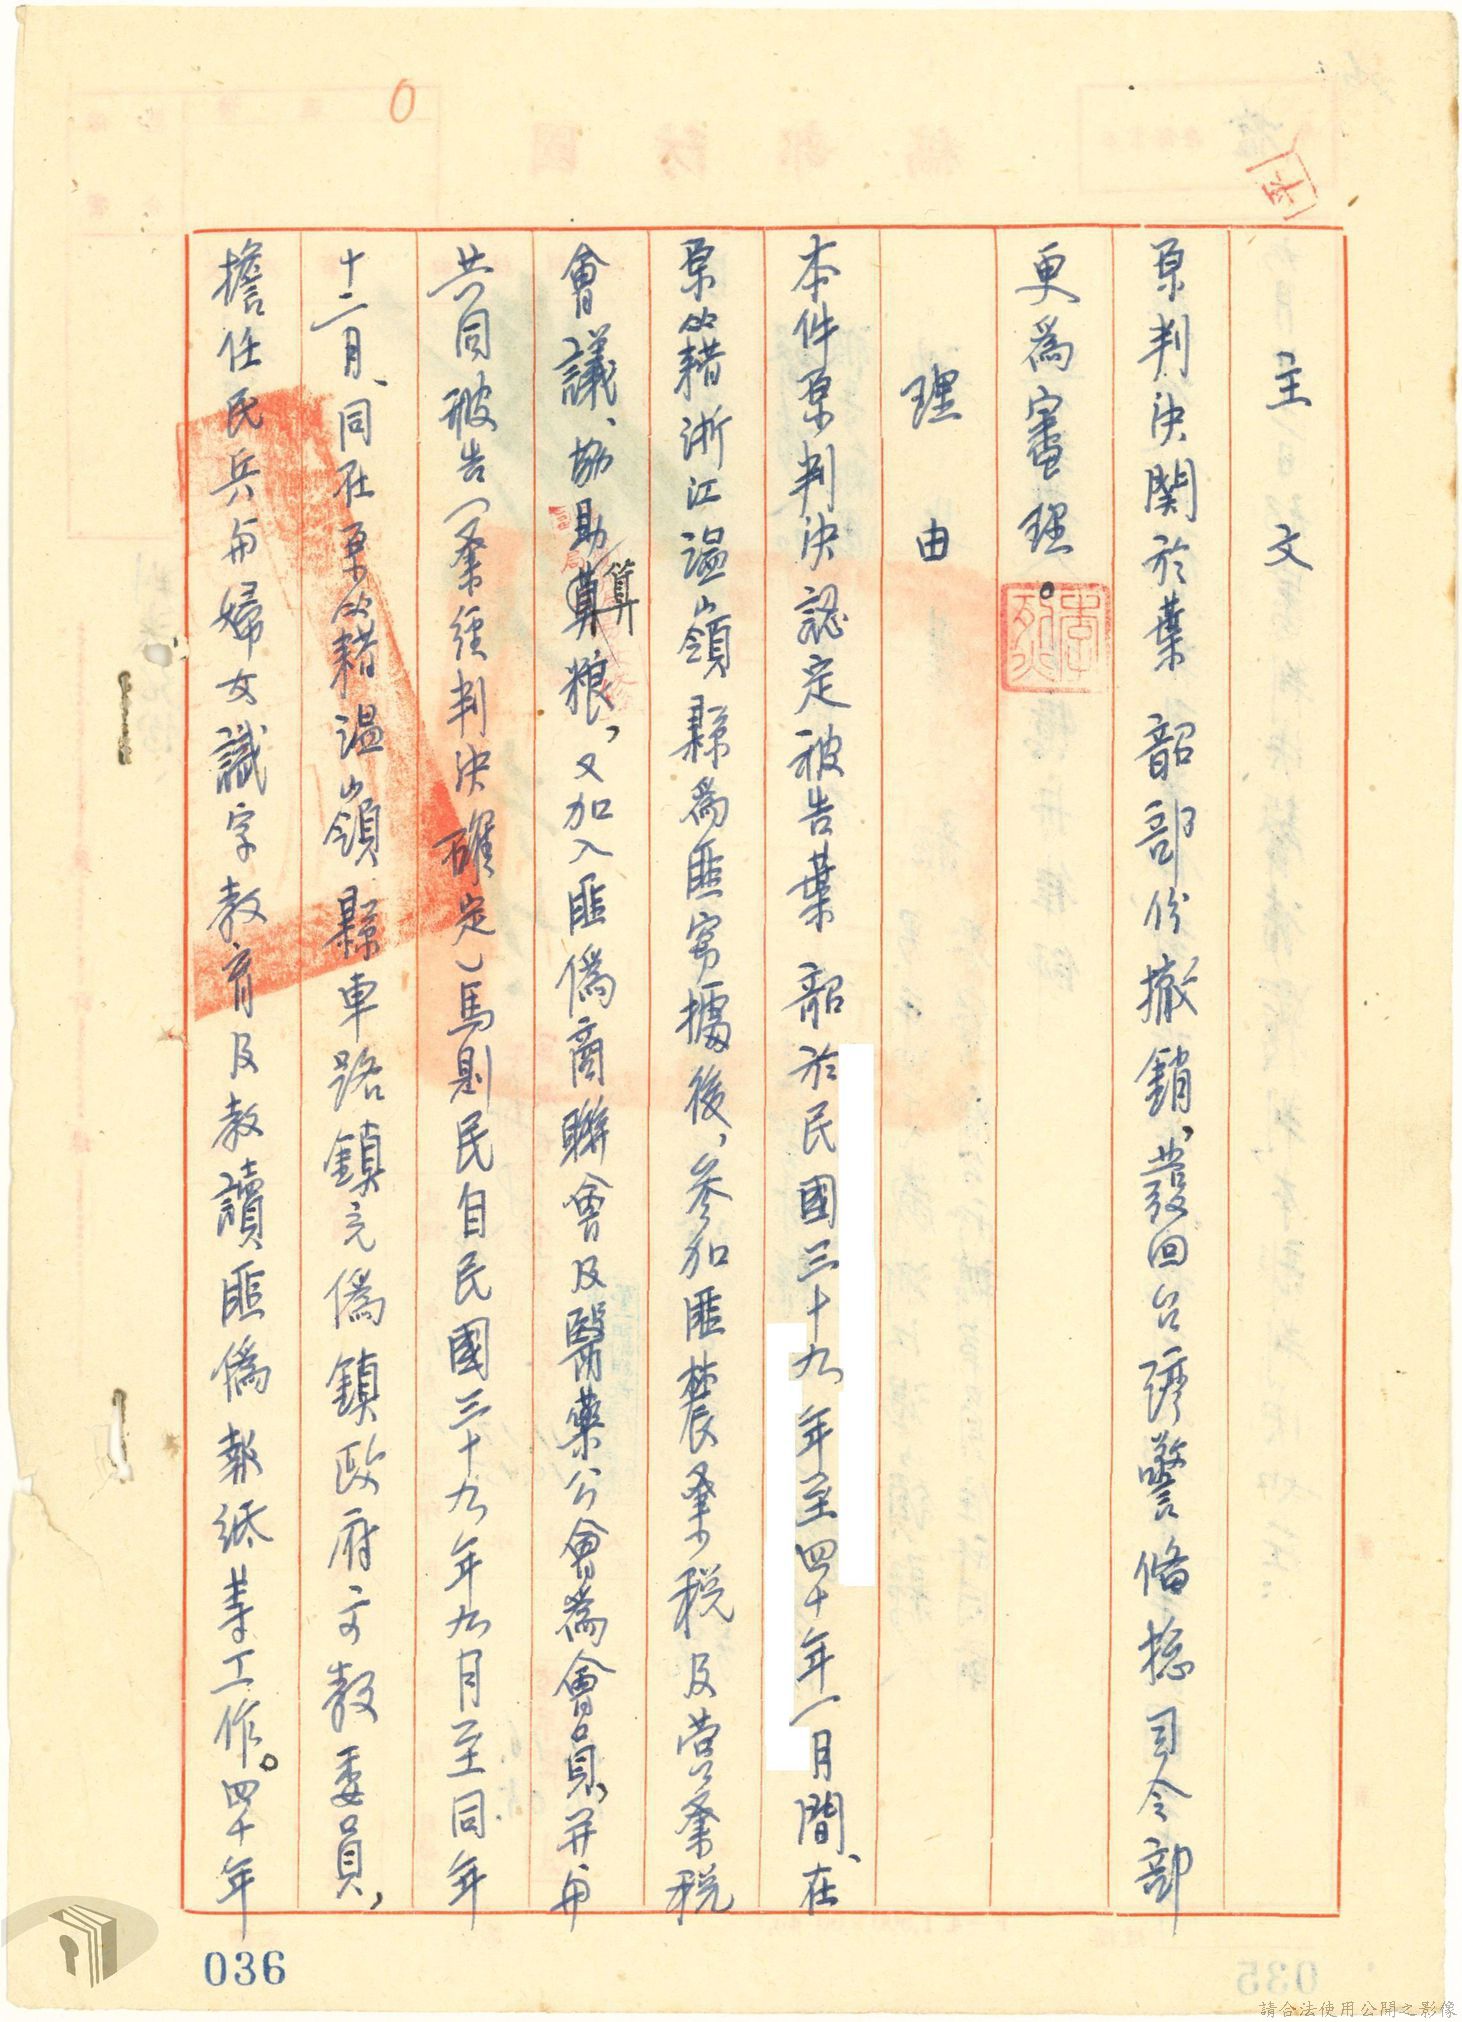 主文
原判決関於葉韶部份撤銷、發回台湾警備総司令部
更為審理。
理由
本件原判決認定被告葉韶於民國三十九年至四十年一月間、在
原籍浙江温嶺縣為匪窃據後，参加匪農業税及营業税
會議、協助算粮，又加入匪偽商聯會及醫藥公會為會員，并与
共同被告（業經判決確定）馬剔民自民國三十九年九月至同年
十二月、同在原籍温嶺縣車路鎮充偽鎮政府文教委員，
擔任民兵与婦女識字教育及教讀匪偽報紙等工作。四十年
算
036
035
請合法使用公開之影像